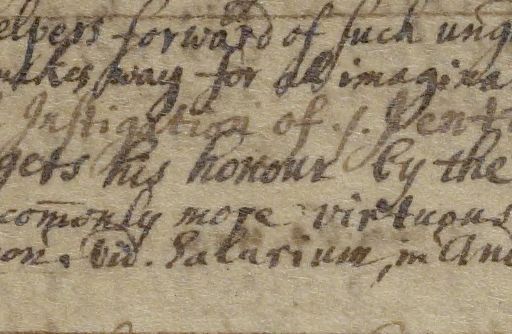 elpers forward of such ung
makes way for all imagina
Instigation of .s. Pent
gers his honour by the
comonly more virtuous
on. Vid. Salarium, in And